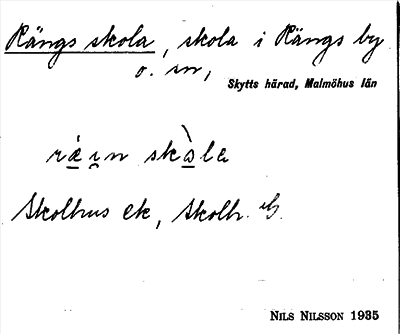 Rängs skola, skola i Rängs by
o. sn,
Skytts härad, Malmöhus län
skola
Skolhus ek, Skolh.
NILS NILSSON 1935